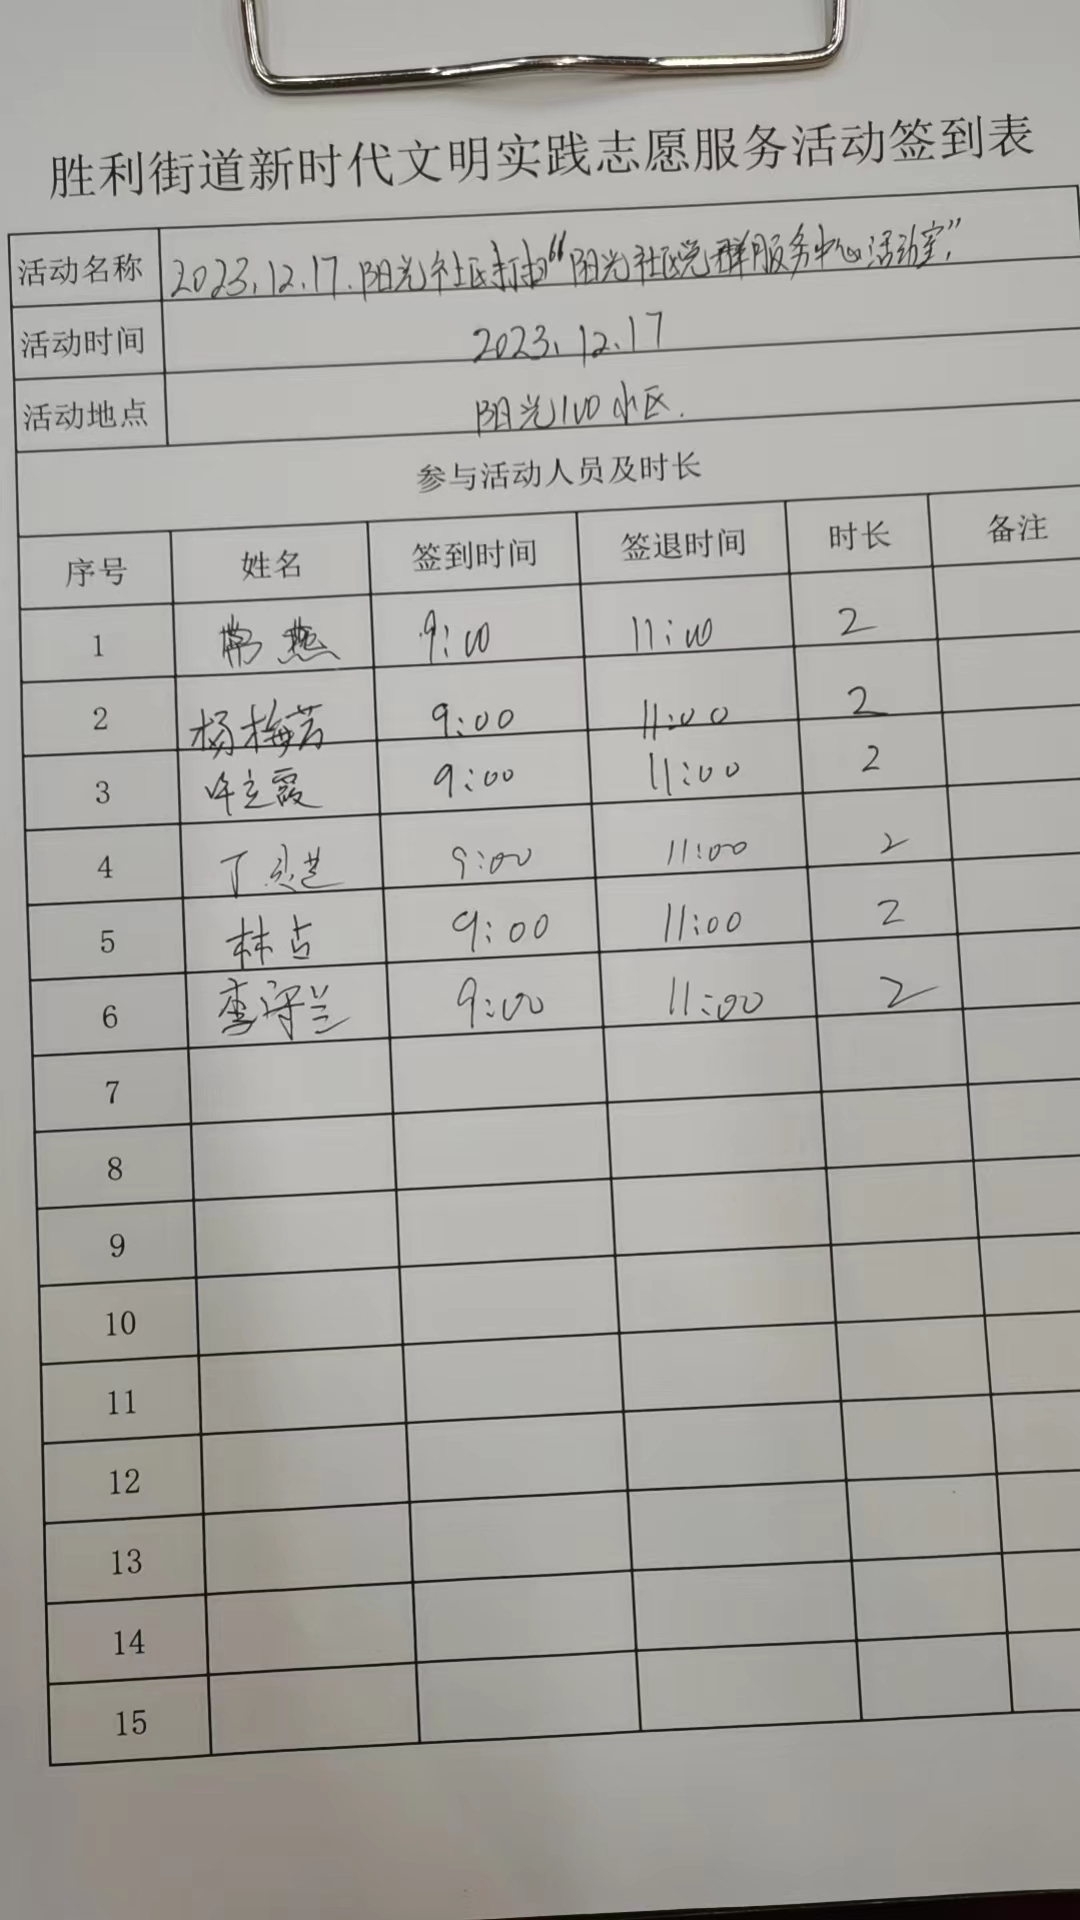 胜利街道新时代文明实践志愿服务活动签到表
活动名称 2023.12.17.阳光社区打扫“阳光社区党群服务中心活动室”
活动时间 2023.12.17
活动地点 阳光100小区.
参与活动人员及时长
序号 姓名 签到时间 签退时间 时长 备注
1 常燕 9:00 11:00 2
2 杨梅芳 9:00 11:00 2
3 霞 9:00 11:00 2
4 丁 9:00 11:00 2
5 林占 9:00 11:00 2
6 李守兰 9:00 11:00 2
7
8
9
10
11
12
13
14
15